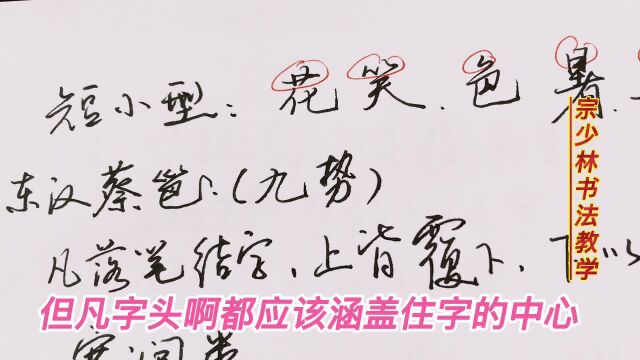 短小型：花、笑、色、暑、
东汉蔡邕：（九势）
凡落笔结字，上皆覆下，下以
但凡字头啊都应该涵盖住字的中心
宗少林书法教学